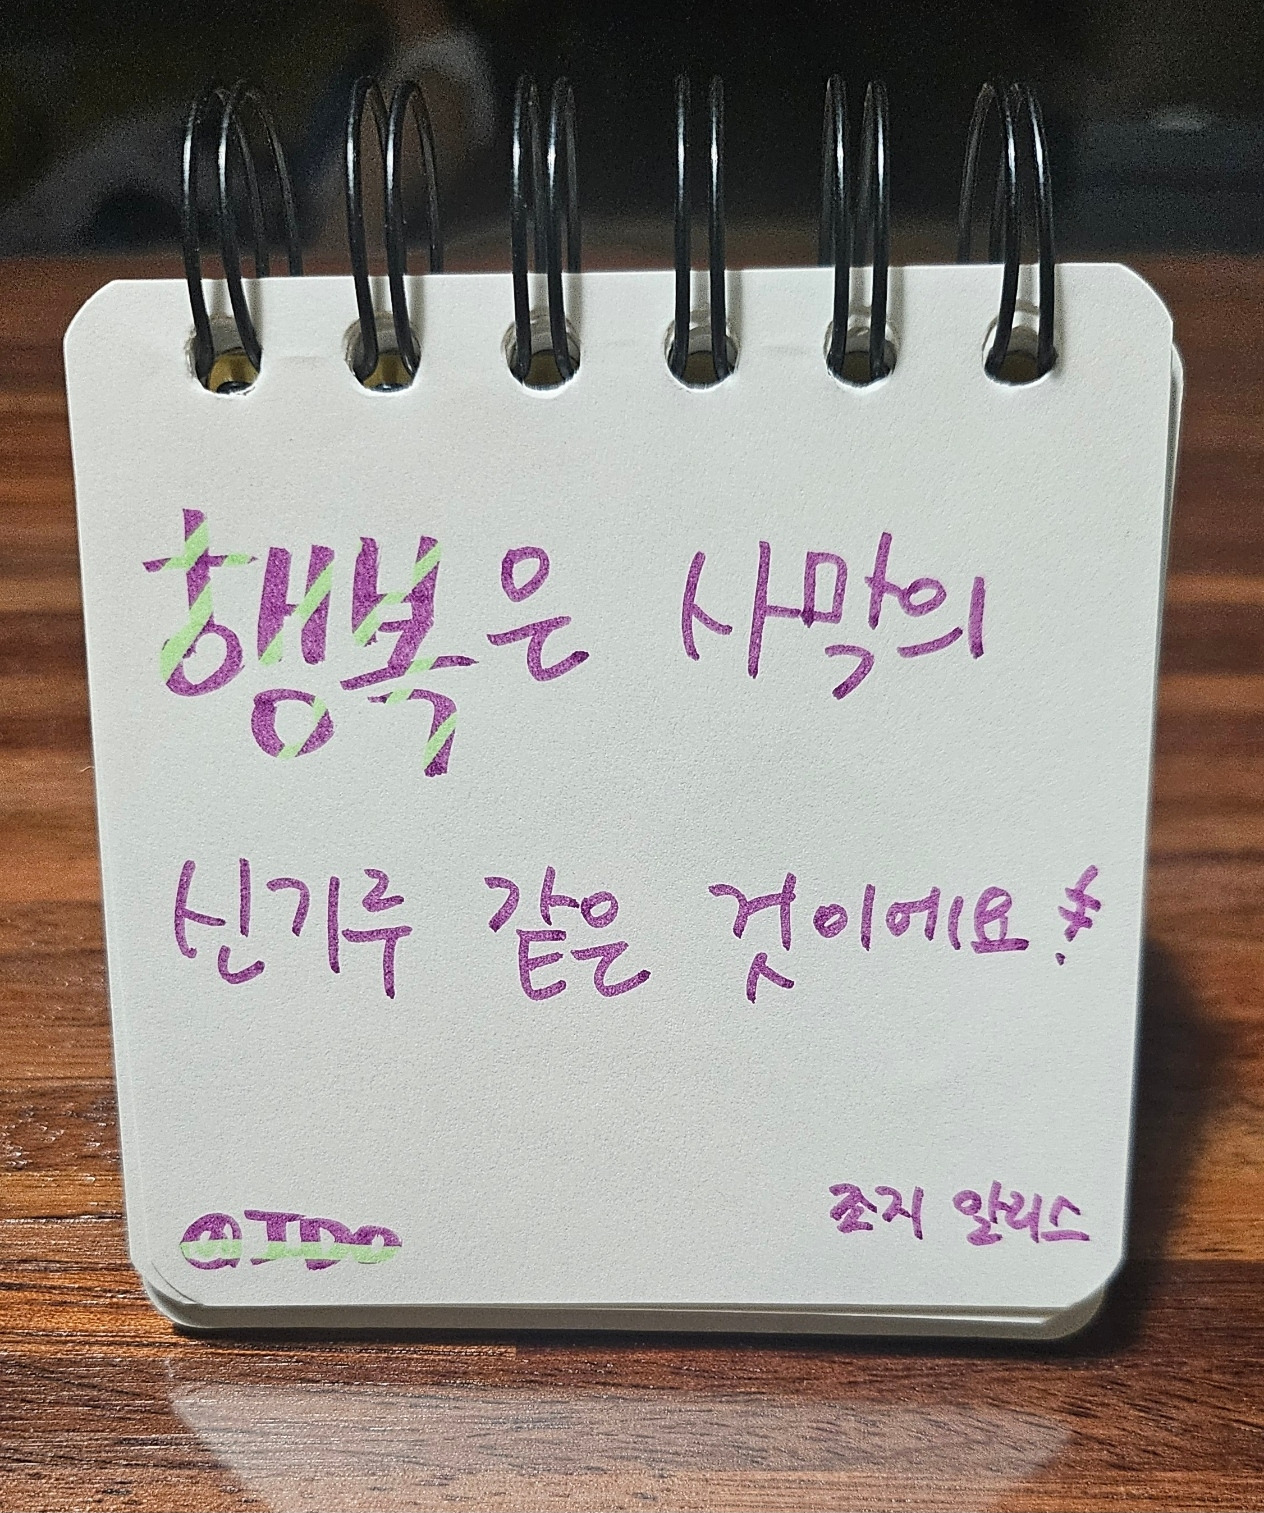 행복은 사막의
신기루 같은 것이에요!
@IDO
조지 알리스